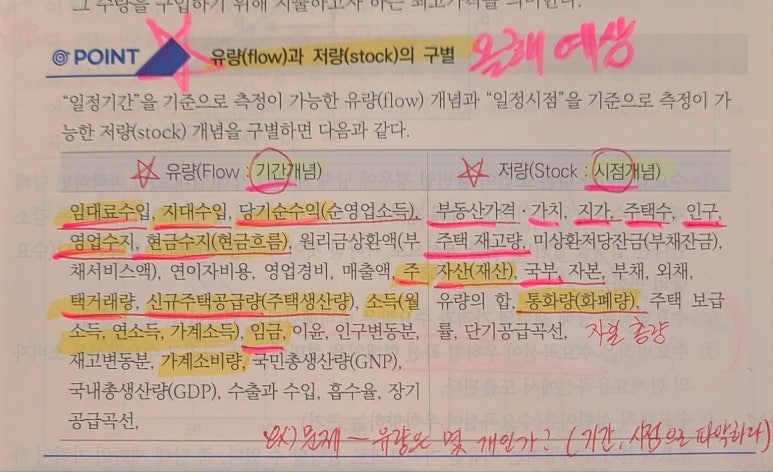 그 수량을 구입하기 위해 지불하고자 하는 최고가격을 의미한다.
POINT 유량(flow)과 저량(stock)의 구별 올해 예상
“일정기간”을 기준으로 측정이 가능한 유량(flow) 개념과 “일정시점”을 기준으로 측정이 가
능한 저량(stock) 개념을 구별하면 다음과 같다.
유량(Flow : 기간개념)
임대료수입, 지대수입, 당기순수익(순영업소득),
영업수지, 현금수지(현금흐름), 원리금상환액(부
채서비스액), 연이자비용, 영업경비, 매출액, 주
택거래량, 신규주택공급량(주택생산량), 소득(월
소득, 연소득, 가계소득), 임금, 이윤, 인구변동분,
재고변동분, 가계소비량, 국민총생산량(GNP),
국내총생산량(GDP), 수출과 수입, 흡수율, 장기
공급곡선,
저량(Stock : 시점개념)
부동산가격·가치, 지가, 주택수, 인구,
주택 재고량, 미상환저당잔금(부채잔금),
자산(재산), 국부, 자본, 부채, 외채,
유량의 합, 통화량(화폐량), 주택 보급
률, 단기공급곡선, 자본 총량
예) 문제 – 유량은 몇 개인가? (기간, 시점으로 파악하라)